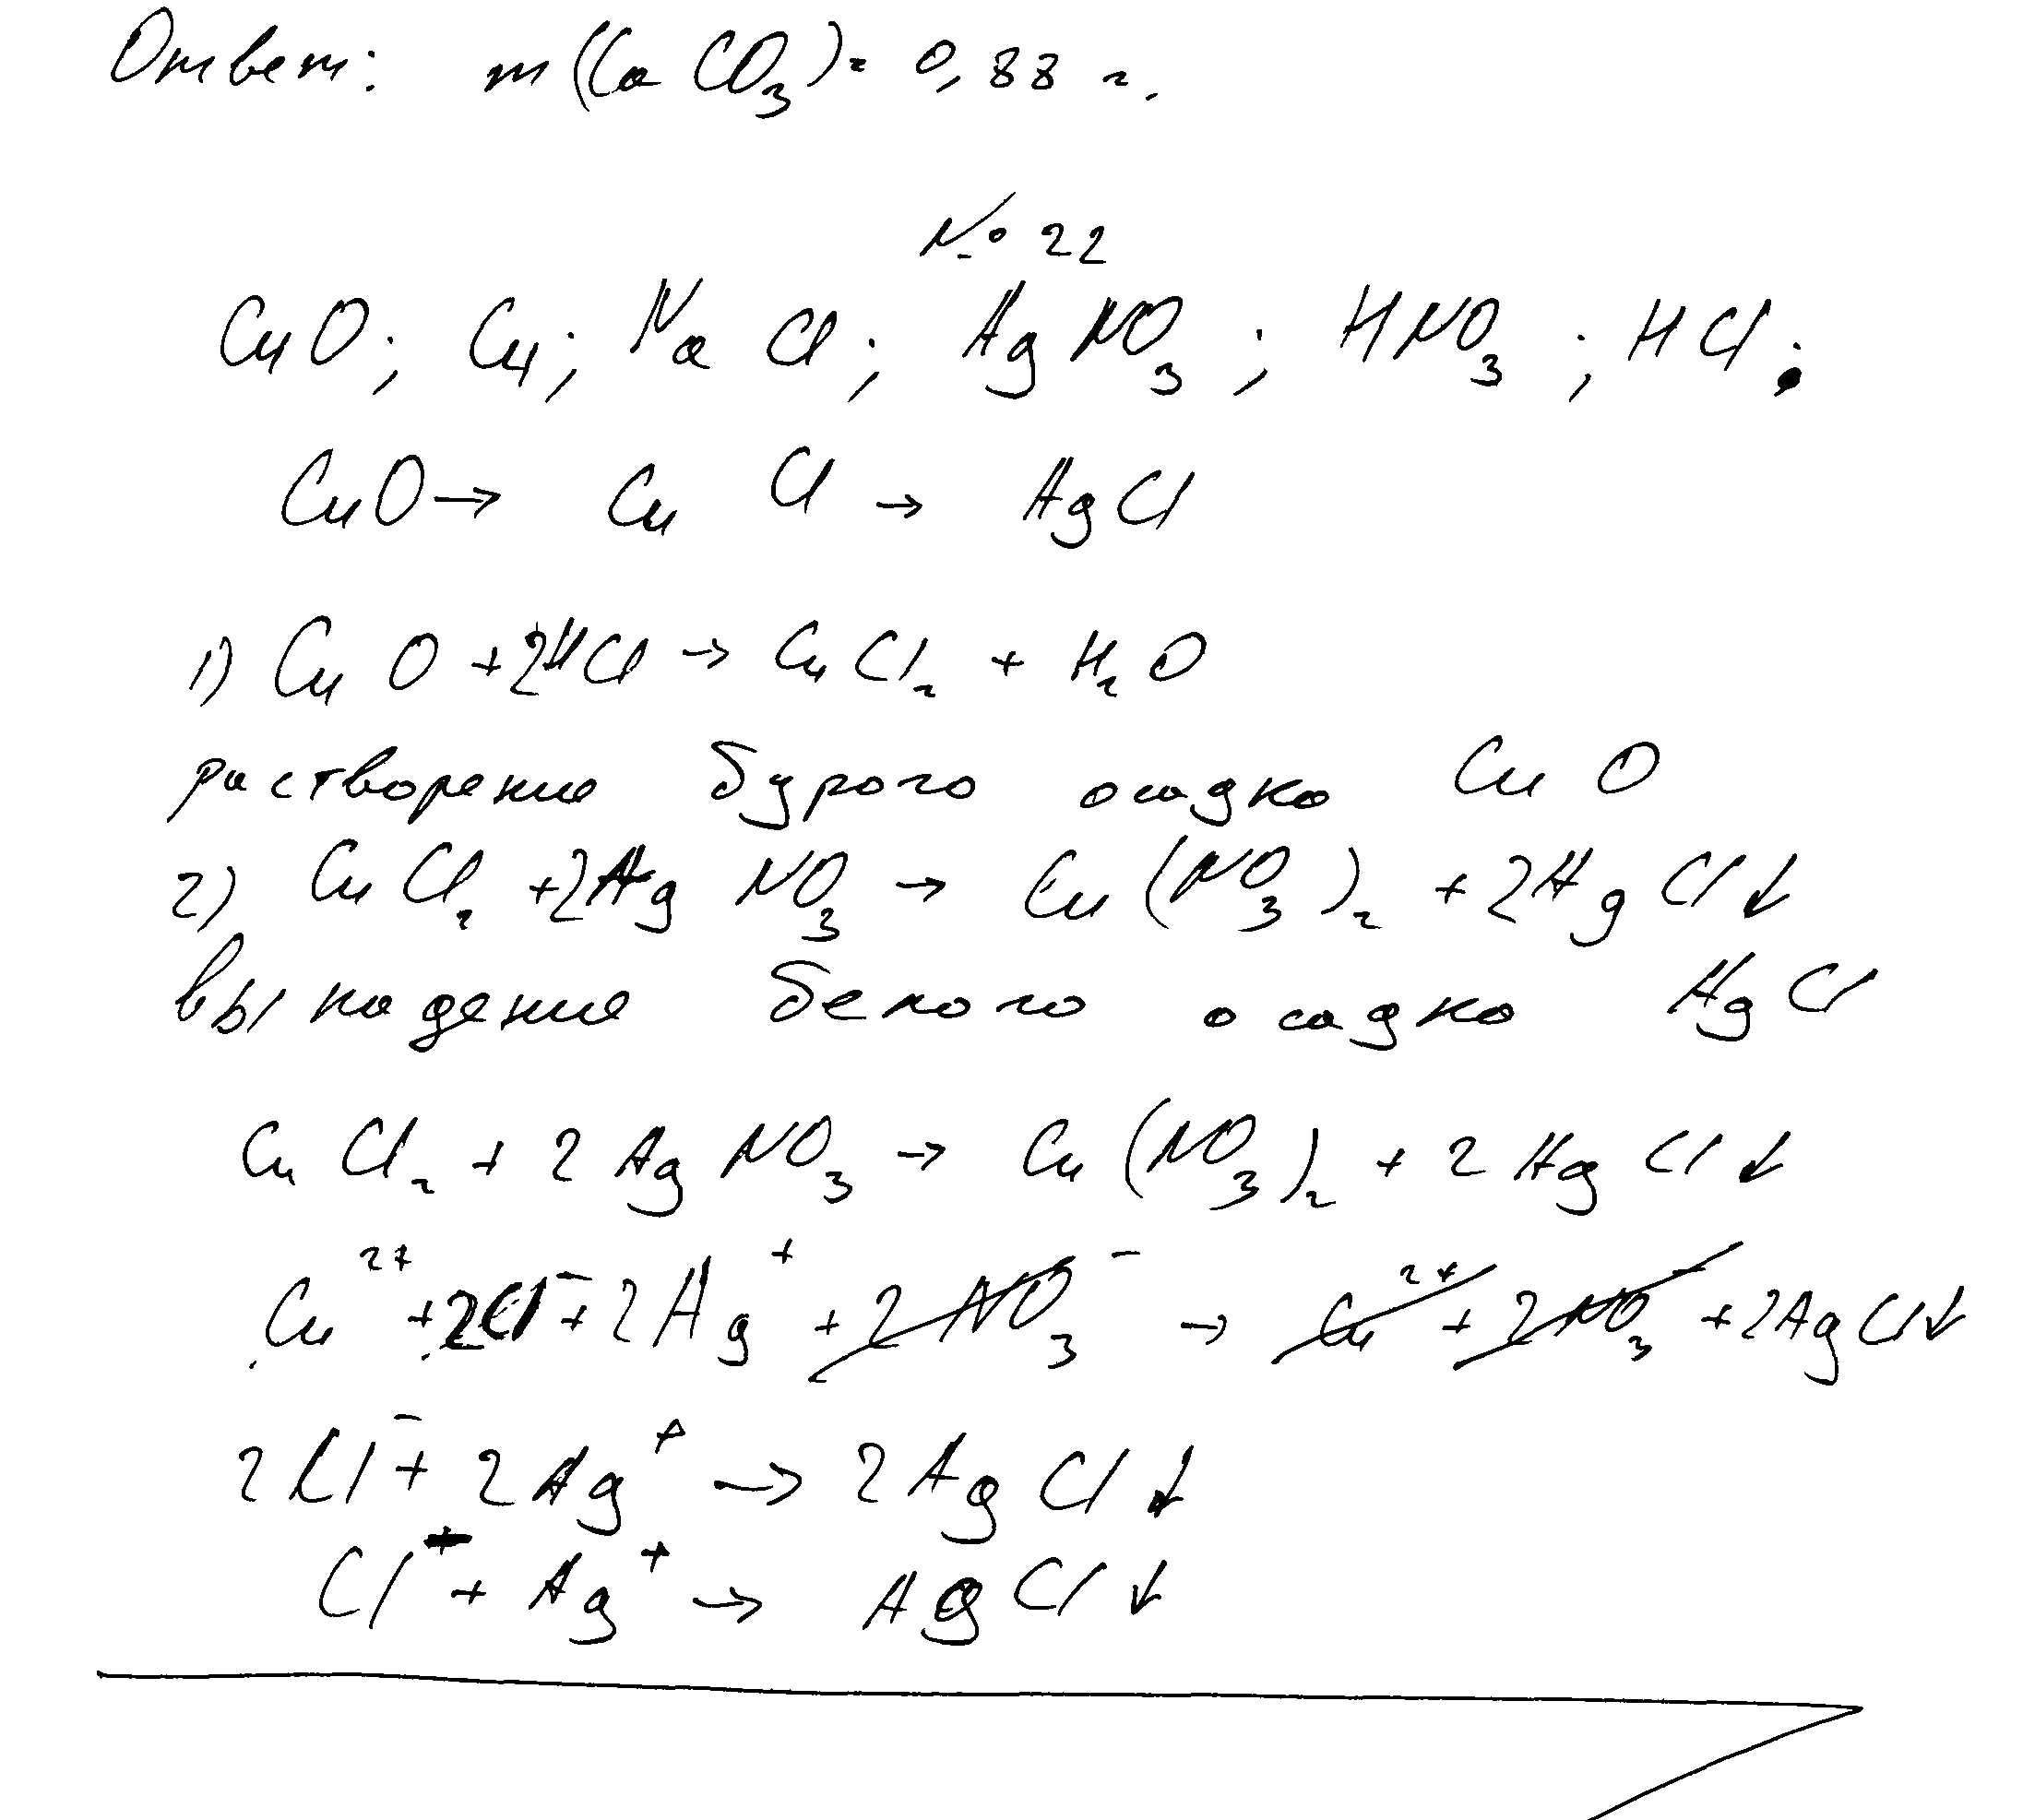 Ответ: m(CaCO₃)= 0,88 г.
№ 22
CuO; Cu; NaCl; AgNO₃; HNO₃; HCl;
CuO → CuCl → AgCl
1) CuO + 2HCl → CuCl₂ + H₂O
растворение бурого осадка CuO
2) CuCl₂ + 2AgNO₃ → Cu(NO₃)₂ + 2AgCl↓
выпадение белого осадка AgCl
CuCl₂ + 2AgNO₃ → Cu(NO₃)₂ + 2AgCl↓
Cu²⁺ + 2Cl⁻ + 2Ag⁺ + 2NO₃⁻ → Cu²⁺ + 2NO₃⁻ + 2AgCl↓
2Cl⁻ + 2Ag⁺ → 2AgCl↓
Cl⁻ + Ag⁺ → AgCl↓